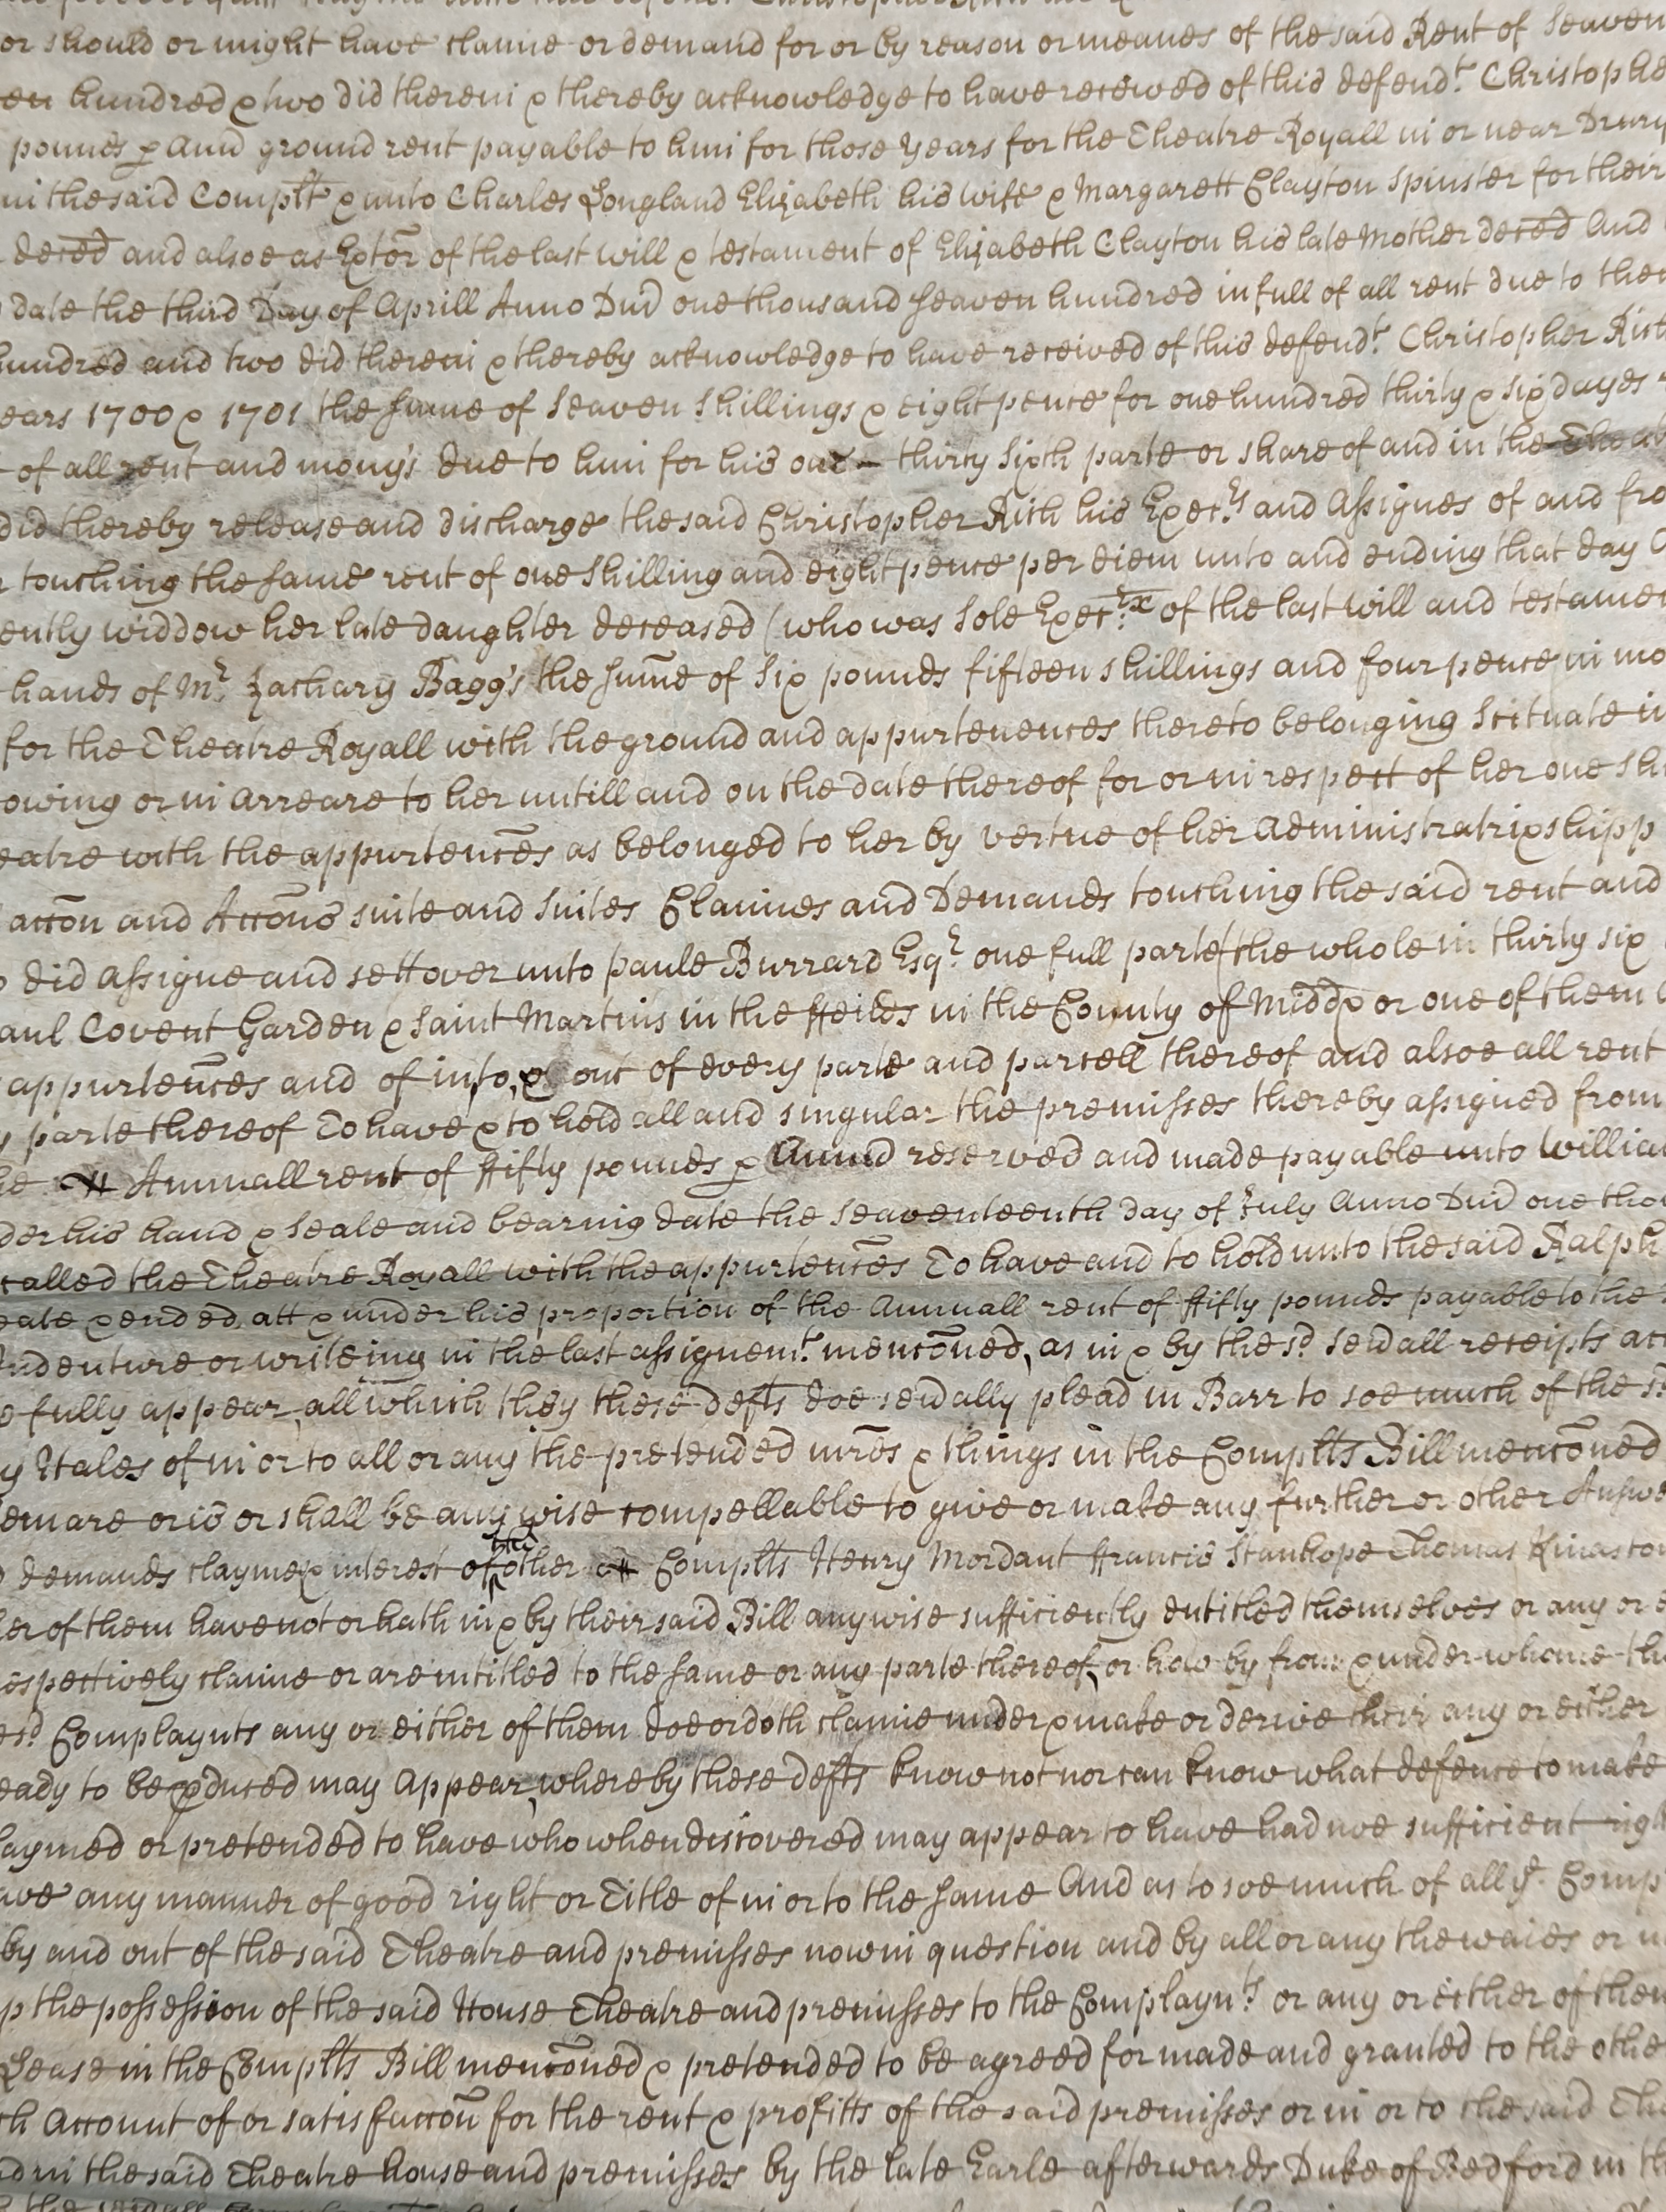 or should or might have claime or demand for or by reason or meanes of the said Rent of Seaven
hundred & two did therein & thereby acknowledge to have received of this defend.t Christophe
pounds p Ann ground rent payable to him for those Years for the Theatre Royall in or near Drury
in the said Complt & unto Charles Longland Elizabeth his wife & Margarett Clayton Spinster for their
deced and alsoe as Extor of the last will & testament of Elizabeth Clayton his late Mother deced And
date the third Day of Aprill Anno Dni one thousand seaven hundred in full of all rent due to them
hundred and two did therein & thereby acknowledge to have received of this defend.t Christopher Rich
ears 1700 & 1701 the sume of seaven shillings & eight pence for one hundred thirty & six dayes
of all rent and mony's due to him for his one thirty sixth parte or share of and in the Theat
did thereby release and discharge the said Christopher Rich his Exec.rs and Assignes of and fro
touching the same rent of one shilling and eight pence per diem unto and ending that day
ently widdow her late daughter deceased (who was sole Exec.rx of the last will and testamen
hands of M.r Zachary Bagg's the sume of six pounds fifteen shillings and four pence in mo
for the Theatre Royall with the ground and appurtenences thereto belonging Scituate in
owing or in arreare to her untill and on the date thereof for or in respect of her one shi
eatre with the appurtences as belonged to her by vertue of her Administratrixshipp
accon and Accons suite and suites Claimes and Demands touching the said rent and
did assigne and sett over unto Paule Burrard Esq.r one full parte (the whole in thirty six
aul Covent Garden & Saint Martins in the ffeilds in the County of Middx or one of them
appurtences and of in, to, & out of every parte and parcell thereof and alsoe all rent
parte thereof To have & to hold all and singular the premisses thereby assigned from
Annuall rent of ffifty pounds p Annu reserved and made payable unto William
der his hand & seale and bearing date the seaventeenth day of July Anno Dni one thou
called the Theatre Royall with the appurtences To have and to hold unto the said Ralph
eate & ended, att & under his proportion of the Annuall rent of ffifty pounds payable to the
Indenture or writeing in the last assignem.t menconed, as in & by the s.d sevall receipts
fully appear, all which they these defts doe sevally plead in Barr to soe much of the s.d
of in or to all or any the pretended mres & things in the Complts Bill menconed
or is or shall be any wise compellable to give or make any further or other Answe
demands clayme & interest of the other Complts Henry Mordant ffrancis Stanhope Thomas Kinaston
er of them have not or hath in & by their said Bill anywise sufficiently entitled themselves or any or
espectively claime or are intitled to the same or any parte thereof, or how by from & under whome the
s.d Complaynts any or either of them doe or doth claime under & make or derive their any or either
eady to be pduced may appear, whereby these defts know not nor can know what defence to make
aymed or pretended to have who when discovered may appear to have had noe sufficient righ
ave any manner of good right or Title of in or to the same And as to soe much of all y.e Comp
by and out of the said Theatre and premisses now in question and by all or any the waies or
p the possession of the said House Theatre and premisses to the Complayn.ts or any or either of them
Lease in the Complts Bill menconed & pretended to be agreed for made and granted to the othe
h Account of or satisfaccon for the rent & profitts of the said premisses or in or to the said The
in the said Theatre house and premisses by the late Earle afterwards Duke of Bedford in th